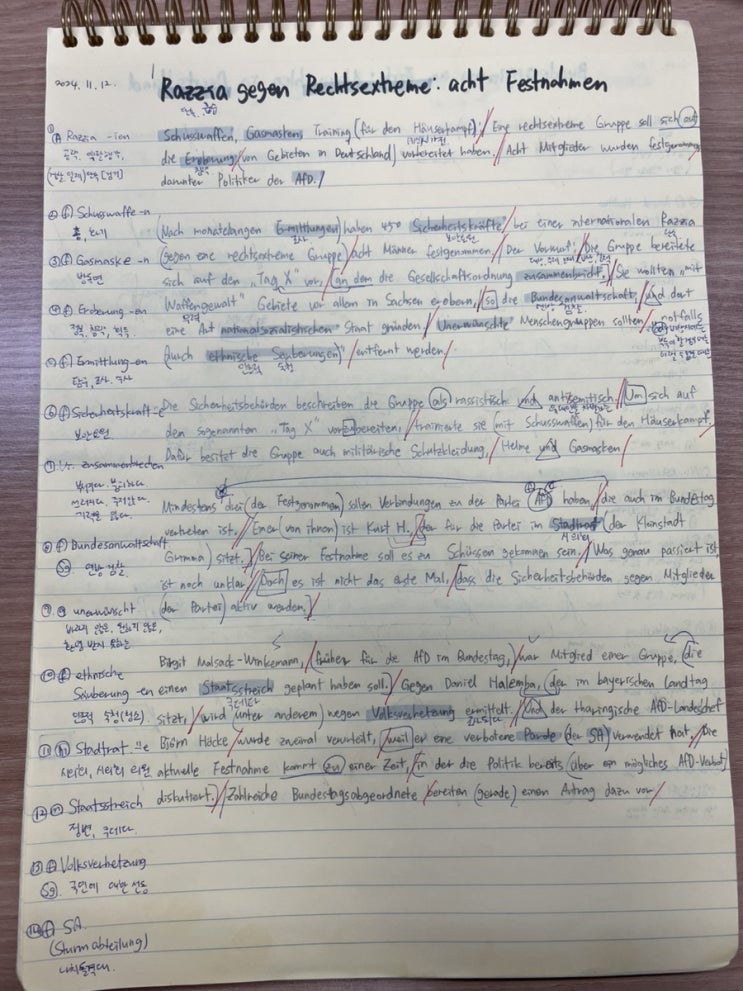 2024. 11. 12.
Razzia gegen Rechtsextreme: acht Festnahmen
① f Razzia -ien
Schusswaffen, Gasmasken, Training (für den Häuserkampf) / Eine rechtsextreme Gruppe soll sich auf
die Eroberung von Gebieten in Deutschland vorbereitet haben. / Acht Mitglieder wurden festgenommen,
darunter Politiker der AfD.
② f Schusswaffe -n
총, 총기
(Nach monatelangen Ermittlungen) haben 450 Sicherheitskräfte bei einer internationalen Razzia
③ f Gasmaske -n
방독면
(gegen eine rechtsextreme Gruppe) acht Männer festgenommen / Der Vorwurf: Die Gruppe bereitete
sich auf den „Tag X" vor, an dem die Gesellschaftsordnung zusammenbricht. / Sie wollten „mit
④ f Eroberung -en
Waffengewalt" Gebiete vor allem in Sachsen erobern, so die Bundesanwaltschaft, und dort
eine Art nationalsozialistischen Staat gründen. / Unerwünschte Menschengruppen sollten notfalls
⑤ f Ermittlung -en
(durch ethnische Säuberungen)" / entfernt werden /
⑥ f Sicherheitskraft -e
보안요원
Die Sicherheitsbehörden beschreiben die Gruppe als rassistisch und antisemitisch / Um sich auf
den sogenannten „Tag X" vorzubereiten, / trainierte sie (mit Schusswaffen) für den Häuserkampf,
Dafür besitzt die Gruppe auch militärische Schutzkleidung, / Helme und Gasmasken /
⑦ zusammenbrechen
Mindestens drei (der Festgenommen) sollen Verbindungen zu der Partei AfD haben, / die auch im Bundestag
vertreten ist. / Einer (von ihnen) ist Kurt H., der für die Partei im Stadtrat (der Kleinstadt
시의회
⑧ f Bundesanwaltschaft
Sg. 연방 검찰
Grimma) sitzt. / Bei seiner Festnahme soll es zu Schüssen gekommen sein. / Was genau passiert ist,
ist noch unklar / Doch es ist nicht das erste Mal, / dass die Sicherheitsbehörden gegen Mitglieder
⑨ unerwünscht
(der Partei) aktiv werden. /
Birgit Malsack-Winkemann, / früher für die AfD im Bundestag, / war Mitglied einer Gruppe, (die
⑩ f ethnische
Säuberung -en
einen Staatsstreich geplant haben soll. / Gegen Daniel Halemba, (der im bayerischen Landtag
쿠데타
sitzt, / wird (unter anderem) wegen Volksverhetzung ermittelt. / Und der thüringische AfD-Landeschef
⑪ m Stadtrat ..e
Björn Höcke / wurde zweimal verurteilt, / weil er eine verbotene Parole (der SA) verwendet hat. / Die
시의회, 시의회 의원
aktuelle Festnahme kommt zu einer Zeit, / in der die Politik bereits (über ein mögliches AfD-Verbot)
⑫ m Staatsstreich
정변, 쿠데타
diskutiert. / Zahlreiche Bundestagsabgeordnete / bereiten (gerade) einen Antrag dazu vor /
⑬ f Volksverhetzung
Sg. 국민에 대한 선동
⑭ f SA
(Sturmabteilung)
나치돌격대.